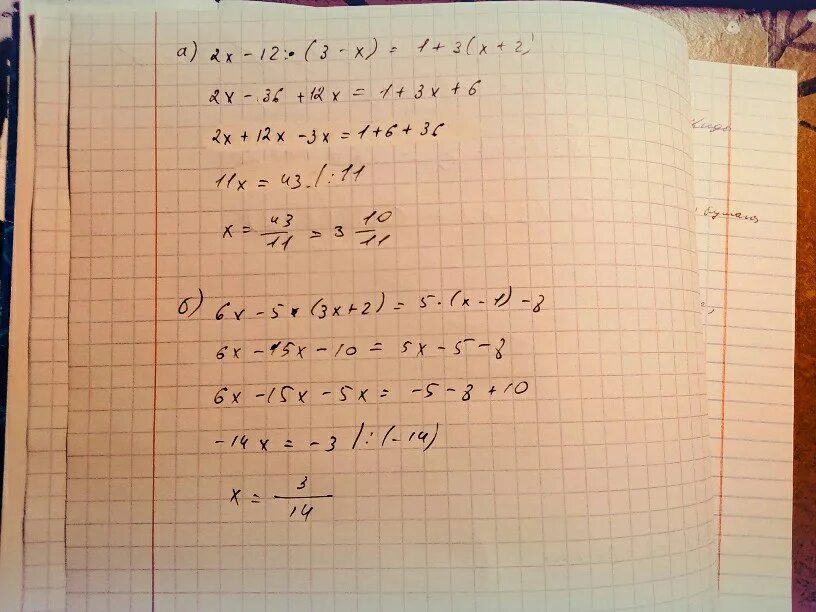 а) 2x - 12 · (3 - x) = 1 + 3(x + 2)
2x - 36 + 12x = 1 + 3x + 6
2x + 12x - 3x = 1 + 6 + 36
11x = 43 /:11
x = 43/11 = 3 10/11
б) 6x - 5 · (3x + 2) = 5 · (x - 1) - 8
6x - 15x - 10 = 5x - 5 - 8
6x - 15x - 5x = -5 - 8 + 10
-14x = -3 /:(-14)
x = 3/14